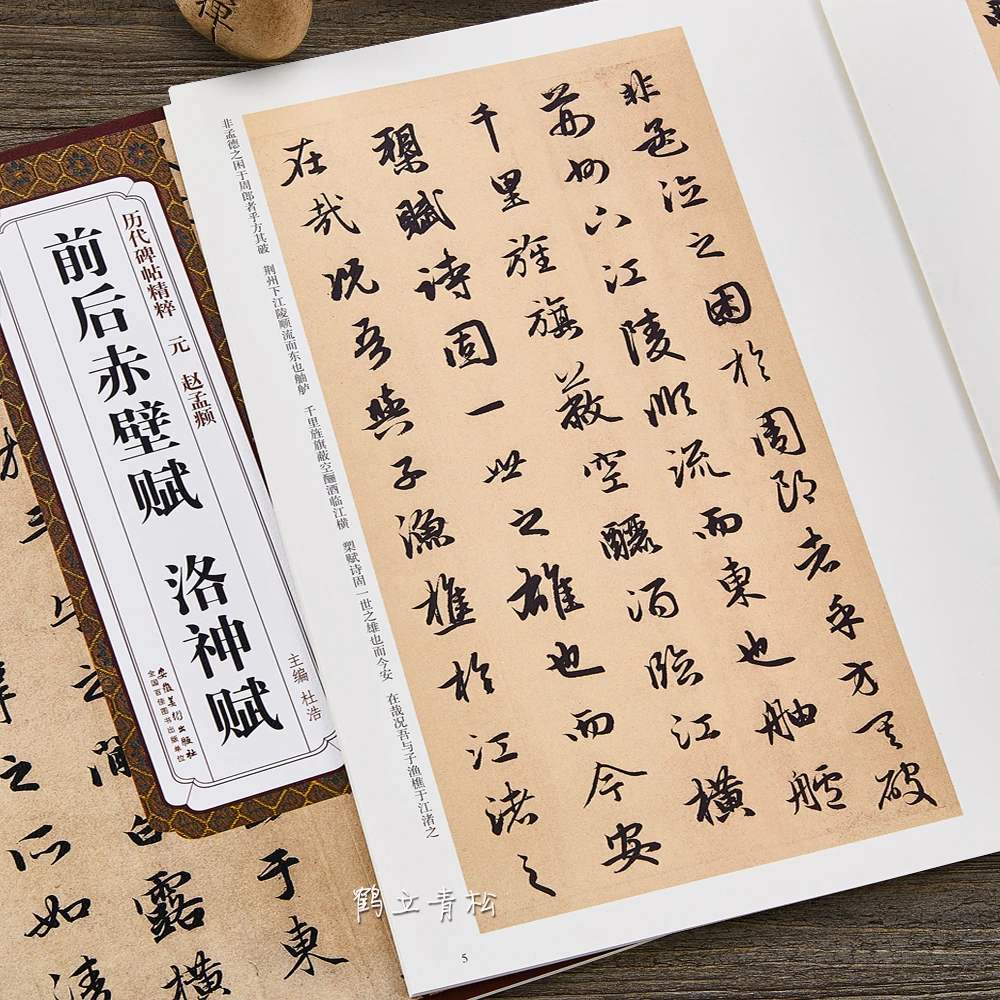 禪
非孟德之困於周郎者乎方其破
荊州下江陵順流而東也舳艫
千里旌旗蔽空釃酒臨江橫
槊賦詩固一世之雄也而今安
在哉況吾與子漁樵於江渚之
非孟德之困于周郎者乎方其破　荆州下江陵顺流而东也舳舻　千里旌旗蔽空酾酒临江横　槊赋诗固一世之雄也而今安　在哉况吾与子渔樵于江渚之
5
历代碑帖精粹　元　赵孟頫
前后赤壁赋　洛神赋
主编 杜浩
安徽美术出版社
全国百佳图书出版单位
于東
白露橫
之
如清
鹤立青松